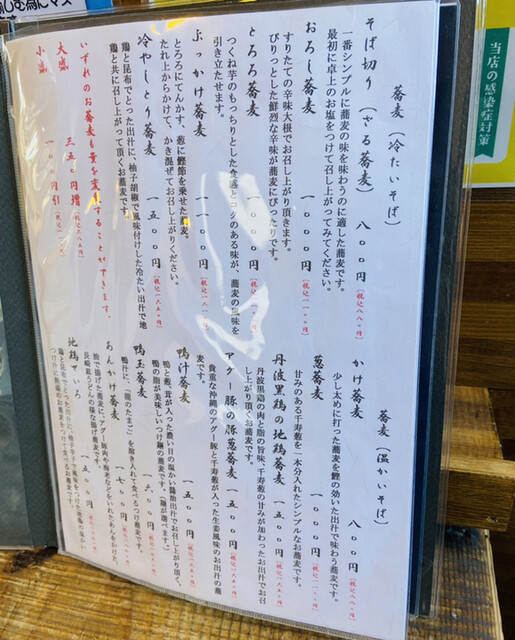 蕎麦（冷たいそば）
そば切り（ざる蕎麦） 八〇〇円（税込八八〇円）
一番シンプルに蕎麦の味を味わうのに適した蕎麦です。
最初に卓上のお塩をつけて召し上がってみてください。
おろし蕎麦 一〇〇〇円
すりたての辛味大根でお召し上がり頂きます。
ぴりっとした鮮烈な辛味が蕎麦にぴったりです。
とろろ蕎麦 一〇〇〇円
つくね芋のもっちりとした食感とコクのある味が、蕎麦の風味を
引き立たせます。
ぶっかけ蕎麦 一一〇〇円
とろろにてんかす、葱に鰹節を乗せた蕎麦。
たれ上からかけて、かき混ぜてお召し上がりください。
冷やしとり蕎麦 一五〇〇円
鶏と昆布でとった出汁に、柚子胡椒で風味付けした冷たい出汁で地
鶏と共に召し上がって頂くお蕎麦です。
いずれのお蕎麦も量を変更することができます。
大盛 三五〇円増
小盛 一〇〇円引
蕎麦（温かいそば）
かけ蕎麦 八〇〇円（税込八八〇円）
少し太めに打った蕎麦を鰹の効いた出汁で味わう蕎麦です。
葱蕎麦 一〇〇〇円
甘みのある千寿葱を一本分入れたシンプルなお蕎麦です。
丹波黒鶏の地鶏蕎麦 一五〇〇円
丹波黒鶏の肉と脂の旨味、千寿葱の甘みが加わったお出汁でお召
し上がり頂くお蕎麦です。
アグー豚の豚葱蕎麦 一五〇〇円
貴重な沖縄のアグー豚と千寿葱が入った生姜風味のお出汁の蕎
麦です。
鴨汁蕎麦 一六〇〇円
鴨と葱、茸が入った濃い目の温かい醤油出汁でお召し上がり頂く、
鴨の脂が美味しいつけ麺の蕎麦です（麺が選べます）
鴨玉蕎麦 一七〇〇円
鴨汁に、「龍のたまご」を溶き入れて食べるつけ蕎麦です。
あんかけ蕎麦 一五〇〇円
地鶏せいろ
当店の感染症対策